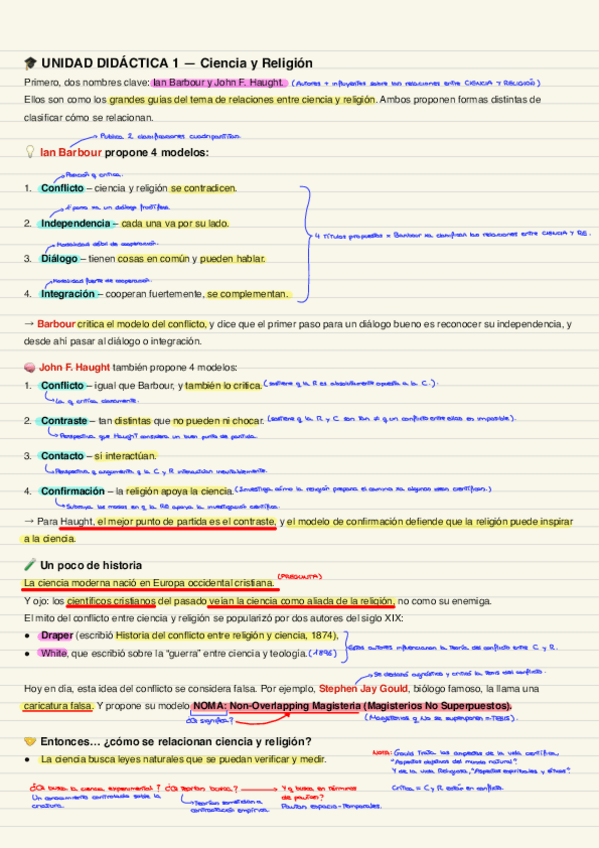 🎓 UNIDAD DIDÁCTICA 1 — Ciencia y Religión
Primero, dos nombres clave: Ian Barbour y John F. Haught. (Autores + influyentes sobre las relaciones entre CIENCIA Y RELIGIÓN)
Ellos son como los grandes guías del tema de relaciones entre ciencia y religión. Ambos proponen formas distintas de
clasificar cómo se relacionan.
Publica 2 clasificaciones cuadripartitas.
💡 Ian Barbour propone 4 modelos:
Posición q critica.
1. Conflicto – ciencia y religión se contradicen.
1º paso para un diálogo fructífero
2. Independencia – cada una va por su lado.
4 títulos propuestos = Barbour para clasificar las relaciones entre CIENCIA Y RE.
Modalidad débil de cooperación.
3. Diálogo – tienen cosas en común y pueden hablar.
Modalidad fuerte de cooperación.
4. Integración – cooperan fuertemente, se complementan.
→ Barbour critica el modelo del conflicto, y dice que el primer paso para un diálogo bueno es reconocer su independencia, y
desde ahí pasar al diálogo o integración.
🧠 John F. Haught también propone 4 modelos:
1. Conflicto – igual que Barbour, y también lo critica. (sostiene q la R es absolutamente opuesta a la C.).
La q critica claramente.
2. Contraste – tan distintas que no pueden ni chocar. (sostiene q la R y C son tan ≠ q un conflicto entre ellas es imposible).
Perspectiva que Haught considera un buen punto de partida.
3. Contacto – sí interactúan.
Perspectiva q argumenta q la C y R interactúan inevitablemente.
4. Confirmación – la religión apoya la ciencia. (Investiga cómo la religión prepara el camino xa algunas ideas científicas.)
Subraya los modos en q la RE apoya la investigación científica.
→ Para Haught, el mejor punto de partida es el contraste, y el modelo de confirmación defiende que la religión puede inspirar
a la ciencia.
🧪 Un poco de historia
La ciencia moderna nació en Europa occidental cristiana. (PREGUNTA)
Y ojo: los científicos cristianos del pasado veían la ciencia como aliada de la religión, no como su enemiga.
El mito del conflicto entre ciencia y religión se popularizó por dos autores del siglo XIX:
● Draper (escribió Historia del conflicto entre religión y ciencia, 1874),
● White, que escribió sobre la “guerra” entre ciencia y teología. (1896)
Estos autores influenciaron la teoría del conflicto entre C y R.
Se declaró agnóstico y criticó la tesis del conflicto.
Hoy en día, esta idea del conflicto se considera falsa. Por ejemplo, Stephen Jay Gould, biólogo famoso, la llama una
caricatura falsa. Y propone su modelo NOMA: Non-Overlapping Magisteria (Magisterios No Superpuestos).
¿Q significa? (Magisterios q No se superponen = TESIS).
🤝 Entonces… ¿cómo se relacionan ciencia y religión?
● La ciencia busca leyes naturales que se puedan verificar y medir.
Nota: Gould trata los aspectos de la vida científica,
"Aspectos objetivos del mundo natural"
Y de la vida Religiosa, "Aspectos espirituales y éticos".
Crítica = C y R están en conflicto.
¿Q busca la ciencia experimental?
Un conocimiento controlado sobre la
¿Q teorías busca?
Teorías sometidas a
contrastación empírica.
Y q busca en términos
de pautas?
Pautas espacio-temporales.